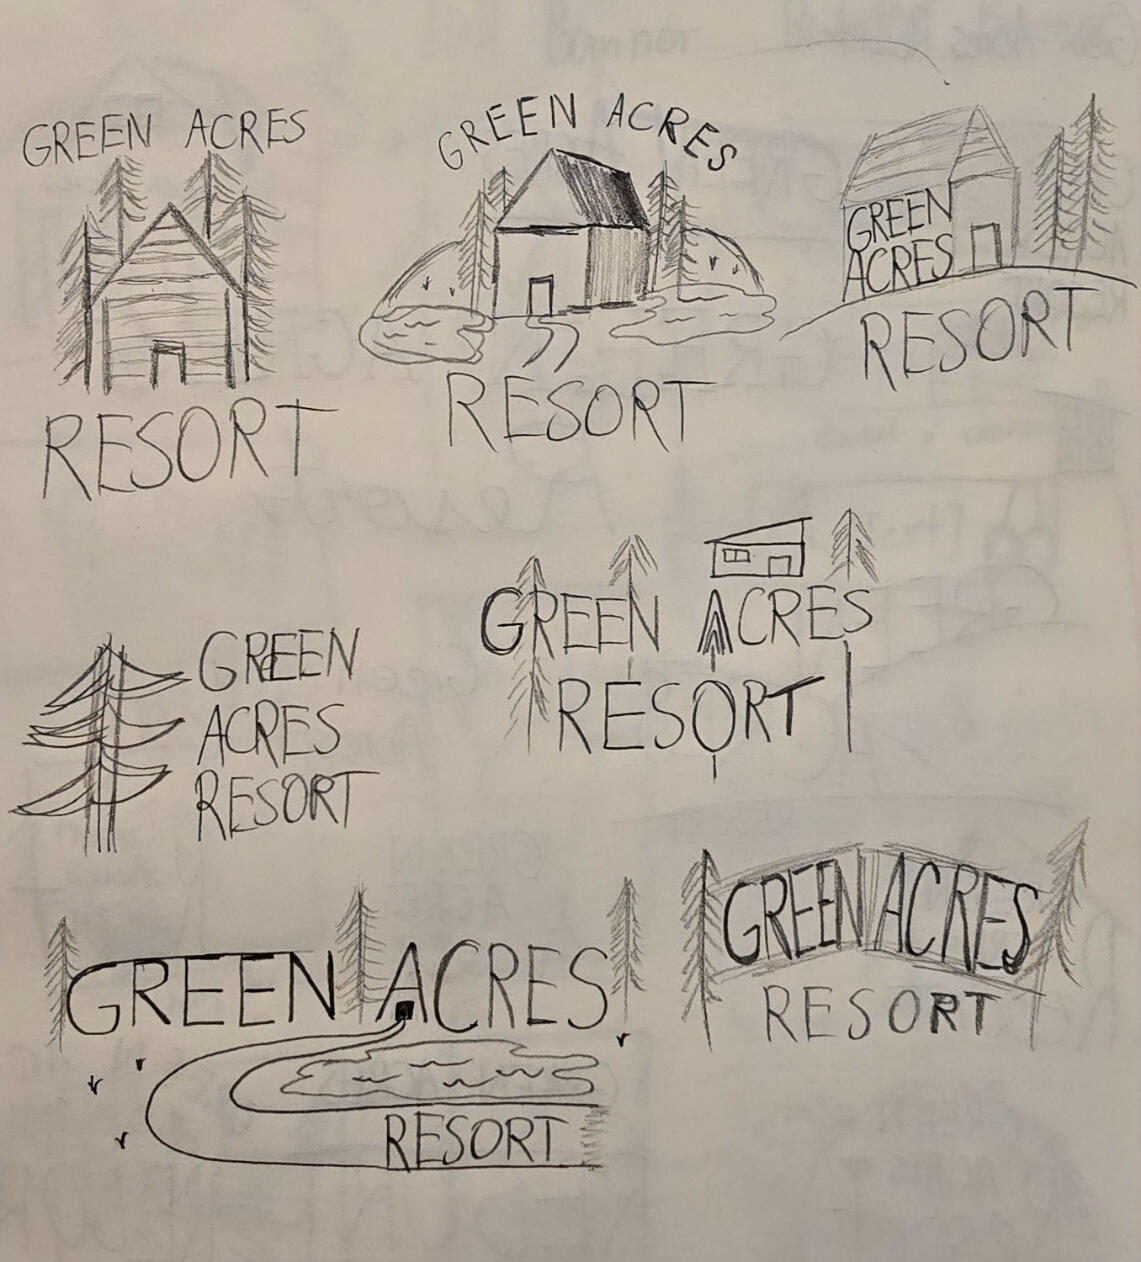 GREEN ACRES
RESORT
GREEN ACRES
RESORT
GREEN
ACRES
RESORT
GREEN
ACRES
RESORT
GREEN ACRES
RESORT
GREEN ACRES
RESORT
GREEN ACRES
RESORT